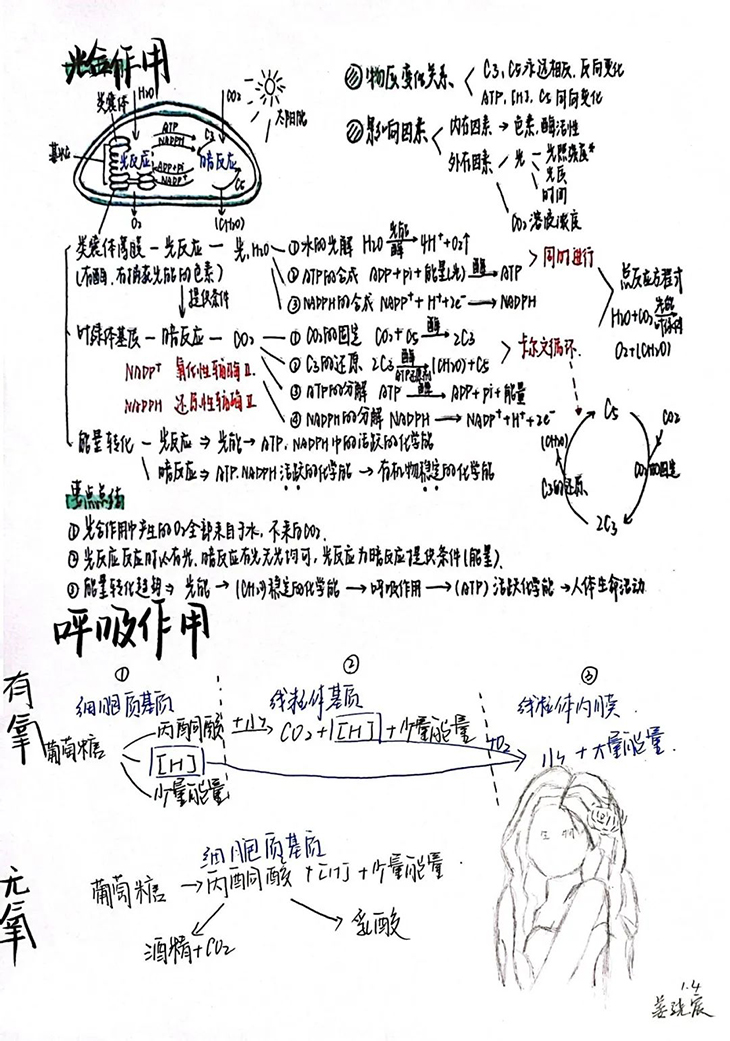 光合作用
类囊体
H2O
CO2
太阳能
ATP
NADPH
C3
基粒
光反应
暗反应
ADP+Pi
NADP+
C5
O2
(CH2O)
②物质变化关系
C3, C5永远相反, 反向变化
ATP, [H], C5同向变化
②影响因素
内在因素 → 色素, 酶活性
外在因素
光
光照强度*
光质
时间
CO2 溶液浓度
类囊体薄膜 — 光反应 — 光, H2O
(有酶, 有捕获光能的色素)
↓提供条件
①水的光解 H2O 光能 酶→ 4H+ + O2↑
②ATP的合成 ADP+pi+能量(光) 酶→ATP
③NADPH的合成 NADP+ + H+ + 2e- → NADPH
同时进行
总反应方程式
H2O+CO2 光能 叶绿体
O2+(CH2O)
叶绿体基质 — 暗反应 — CO2
①CO2的固定 CO2+C5 酶→2C3
②C3的还原 2C3 酶→ (CH2O)+C5
③ATP的分解 ATP 酶→ ADP+pi+能量
④NADPH的分解 NADPH → NADP+ + H+ + 2e-
卡尔文循环
NADP+ 氧化性辅酶Ⅱ
NADPH 还原性辅酶Ⅱ
C5
CO2
CO2的固定
2C3
C3的还原
(CH2O)
能量转化 — 光反应 ⇒ 光能→ATP, NADPH中的活跃的化学能
暗反应 ⇒ ATP, NADPH活跃的化学能 → 有机物稳定的化学能
考点总结
①光合作用中产生的O2全部来自于水, 不来自CO2.
②光反应反应时必有光, 暗反应有光无光均可, 光反应为暗反应提供条件(能量).
③能量转化趋势 ⇒ 光能 → (CH2O)稳定的化学能 → 呼吸作用 → (ATP) 活跃化学能 → 人体生命活动
呼吸作用
有氧
① ② ③
细胞质基质
线粒体基质
线粒体内膜
葡萄糖
丙酮酸
[H]
少量能量
CO2 + [H] + 少量能量
+O2
+大量能量
无氧
细胞质基质
葡萄糖 → 丙酮酸 + [H] + 少量能量
酒精+CO2
乳酸
生物
1.4